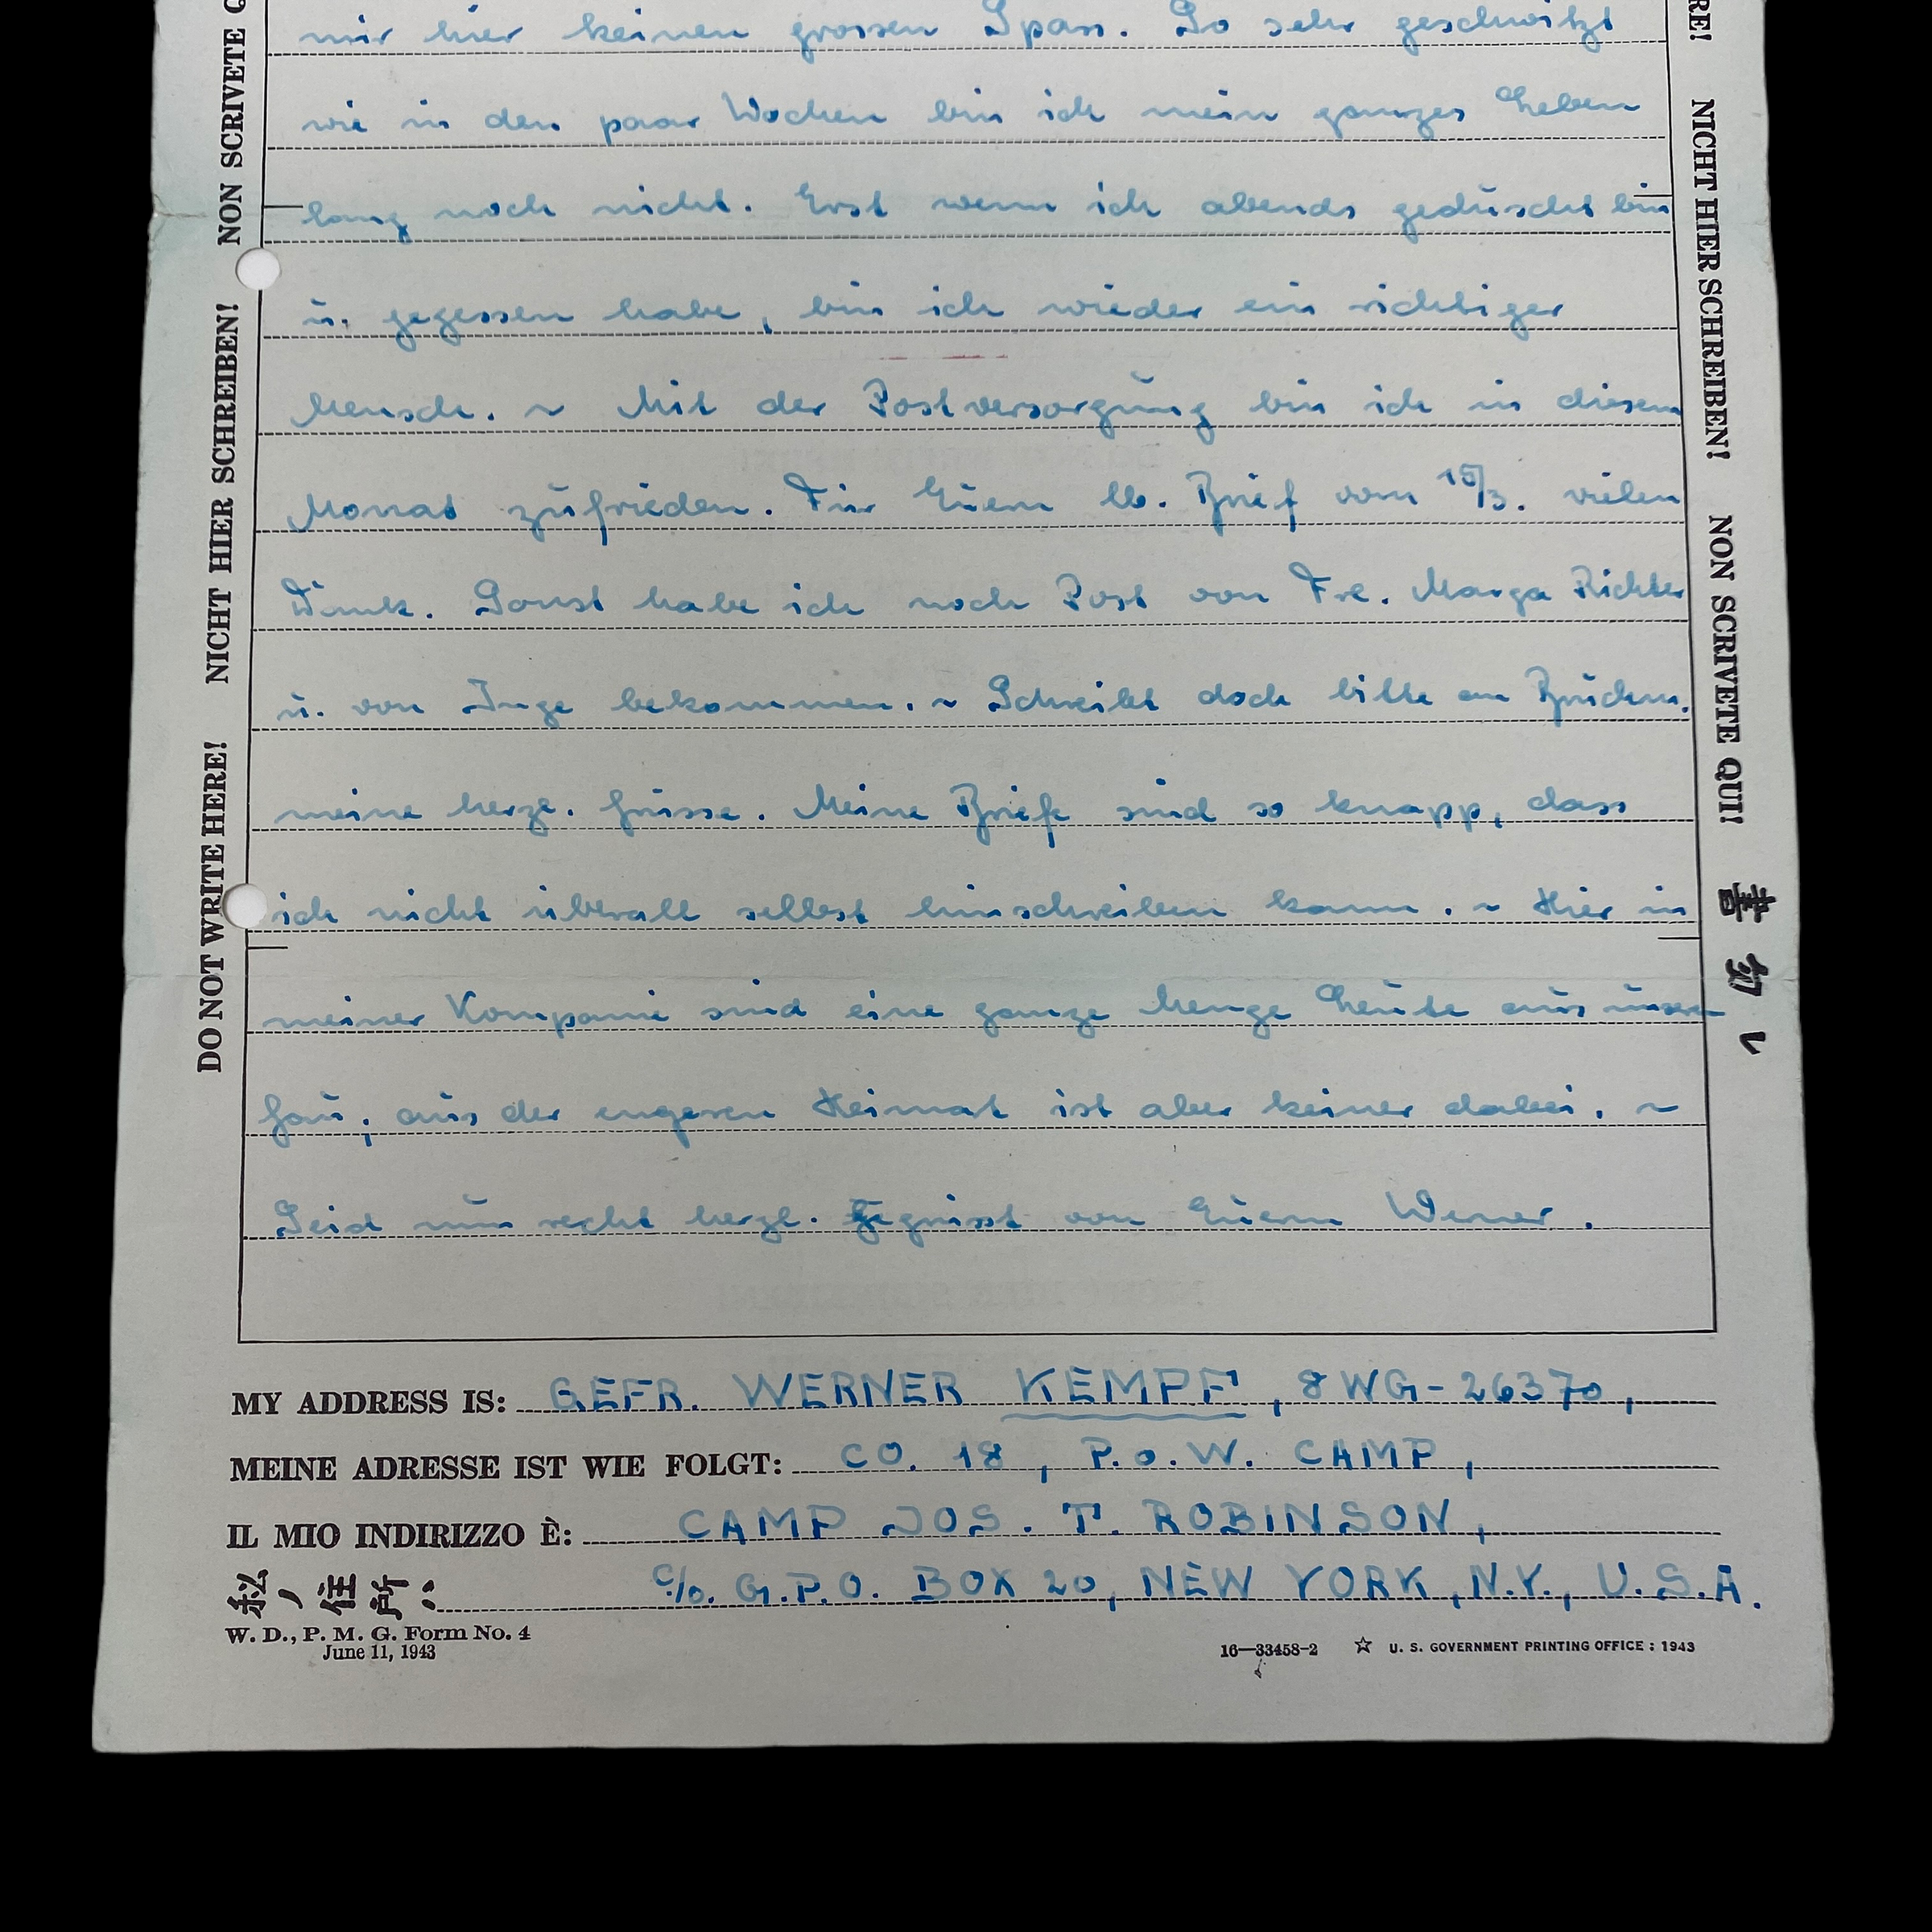 mir hier keinen grossen Spass. So sehr geschwitzt
wie in den paar Wochen bin ich mein ganzes Leben
lang noch nicht. Erst wenn ich abends geduscht bin
u. gegessen habe, bin ich wieder ein richtiger
Mensch. ~ Mit der Postversorgung bin ich in diesem
Monat zufrieden. Für Euern lb. Brief vom 15/3. vielen
Dank. Sonst habe ich noch Post von Frl. Marga Richter
u. von Inge bekommen. ~ Schreibt doch bitte an
meine herzl. Grüsse. Meine Briefe sind so knapp, dass
ich nicht überall selbst hinschreiben kann. ~ Hier in
meiner Kompanie sind eine ganze Menge Leute aus unserm
Gau, aus der engeren Heimat ist aber keiner dabei. ~
Seid nun recht herzl. gegrüsst von Euern Werner.
MY ADDRESS IS: GEFR. WERNER KEMPF, 8WG-26370,
MEINE ADRESSE IST WIE FOLGT: CO. 18, P.o.W. CAMP,
IL MIO INDIRIZZO È: CAMP JOS. T. ROBINSON,
私ノ住所ハ c/o. G.P.O. BOX 20, NEW YORK, N.Y., U.S.A.
W. D., P. M. G. Form No. 4
June 11, 1943
16—33458-2 ☆ U. S. GOVERNMENT PRINTING OFFICE : 1943
DO NOT WRITE HERE! NICHT HIER SCHREIBEN! NON SCRIVETE Q
RE! NICHT HIER SCHREIBEN! NON SCRIVETE QUI!